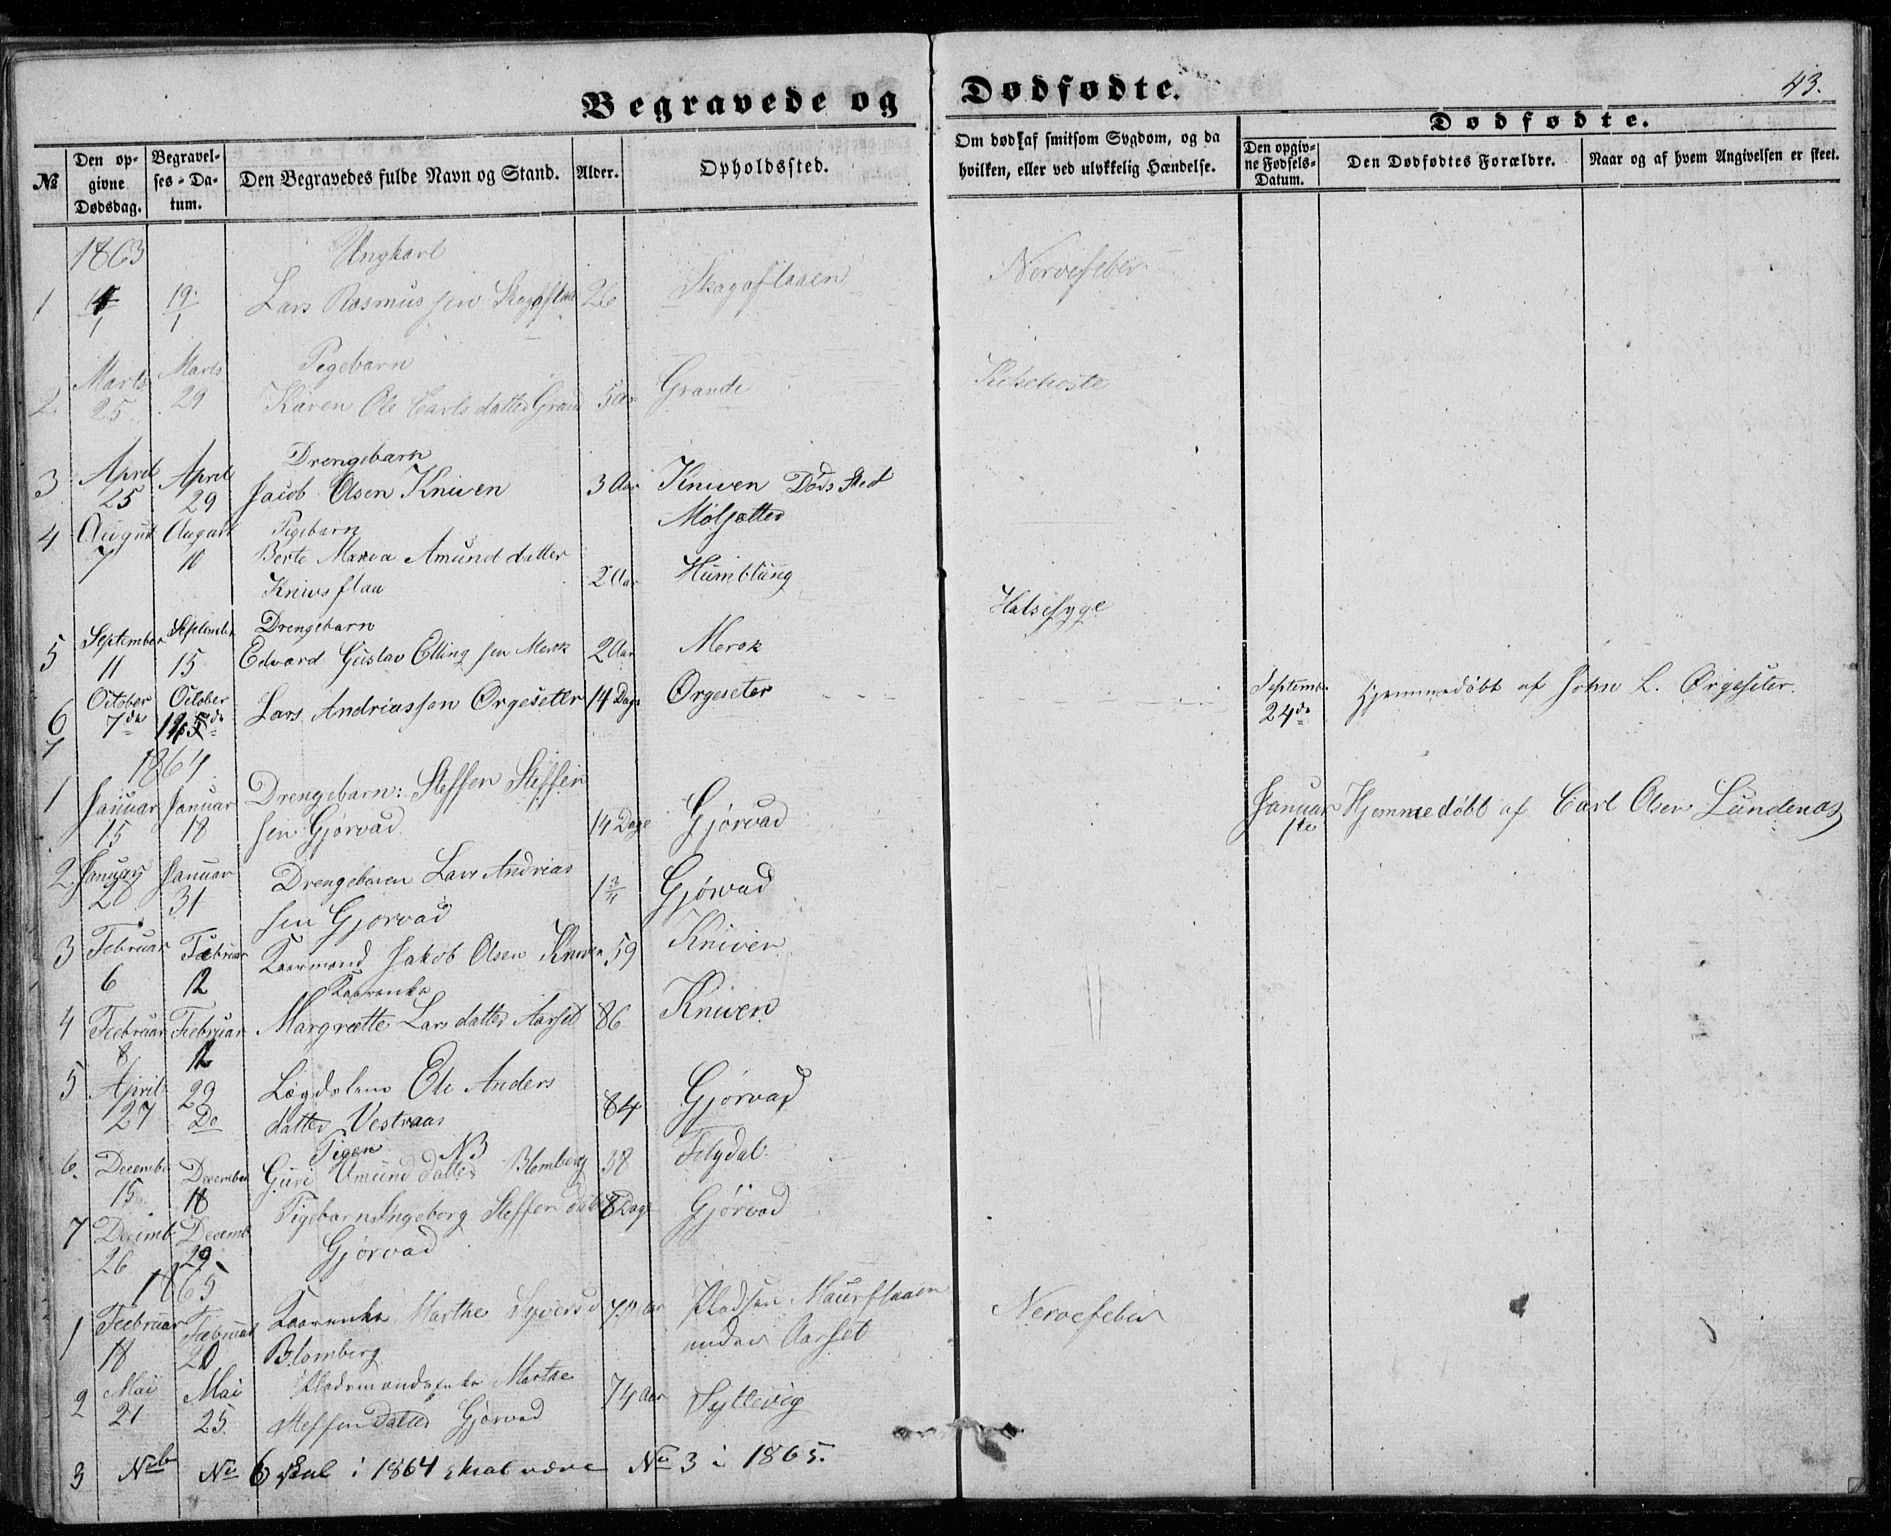 Begravede og Dødfødte.
43.
№
Den opgivne Dødsdag.
Begravelses-Datum.
Den Begravedes fulde Navn og Stand.
Alder.
Opholdssted.
Om død af smitsom Sygdom, og da hvilken, eller ved ulykkelig Hændelse.
Dødfødte.
Den opgivne Fødsels-Datum.
Den Dødfødtes Forældre.
Naar og af hvem Angivelsen er skeet.
1863
Ungkarl
1 19/1 Lars Rasmussen 26 Skagaflaaen Nervefeber
Pigebarn
2. Marts 25 Marts 29 Karen Ole Carlsdatter Grand 5 Aar Grande Kighoste
Drengebarn
3 April 25 April 29 Jacob Olsen Kniven 3 Aar Kniven Døds Sted
Molsætter
4 August 7 August 10 Pigebarn
Berte Maria Amunddatter
Knivsflaa 2 Aar Humblung
Halsesyge
5 September 11 September 15 Drengebarn
Edvard Gustav Elling sen Merok 2 Aar Merok
6 October 7de October Lars Andriassen Ørgesetter 14 Dage Ørgeseter Septembr 24de Hjemmedøbt af John L. Ørgeseter.
7
1864
1 Januar 15 Januar 18 Drengebarn: Steffen Steffen
sen Gjørvad 14 Dage Gjørvad Januar 1te Hjemmedøbt af Carl Olsen Lundenæs
2 Januar Januar 31 Drengebaren Lars Andrias
sen Gjørvad 1 3/4 Gjørvad
3 Februar 6 Februar 12 Kaarmand Jakob Olsen Kniven 59 Kniven
Kaarenke
4 Februar 8 Februar 12 Margrætte Lars datter Aarset 86 Kniven
5 April 27 29 Do Lægdslem Ele Anders
datter Vestraas 84 Gjørvad
Pigen NB
6. December 15 December 18 Guri Amund datter Blomberg 38
7 Decemb 26 Decemb 29 Pigebarn Ingeborg Steffen datter 8 Dage Gjørvad
Gjørvad
1865
1 Februar 18 Februar 20 Kaarenke Marthe Syversd Pladsen Maursflaaen Nervefeber
Blomberg under Aarset
2 Mai 21 Mai 25. Pladsmandsenke Marthe
Steffendatter Gjørvad 74 Aar Syltevig
3 No 6 i 1864 skal være No 3 i 1865.